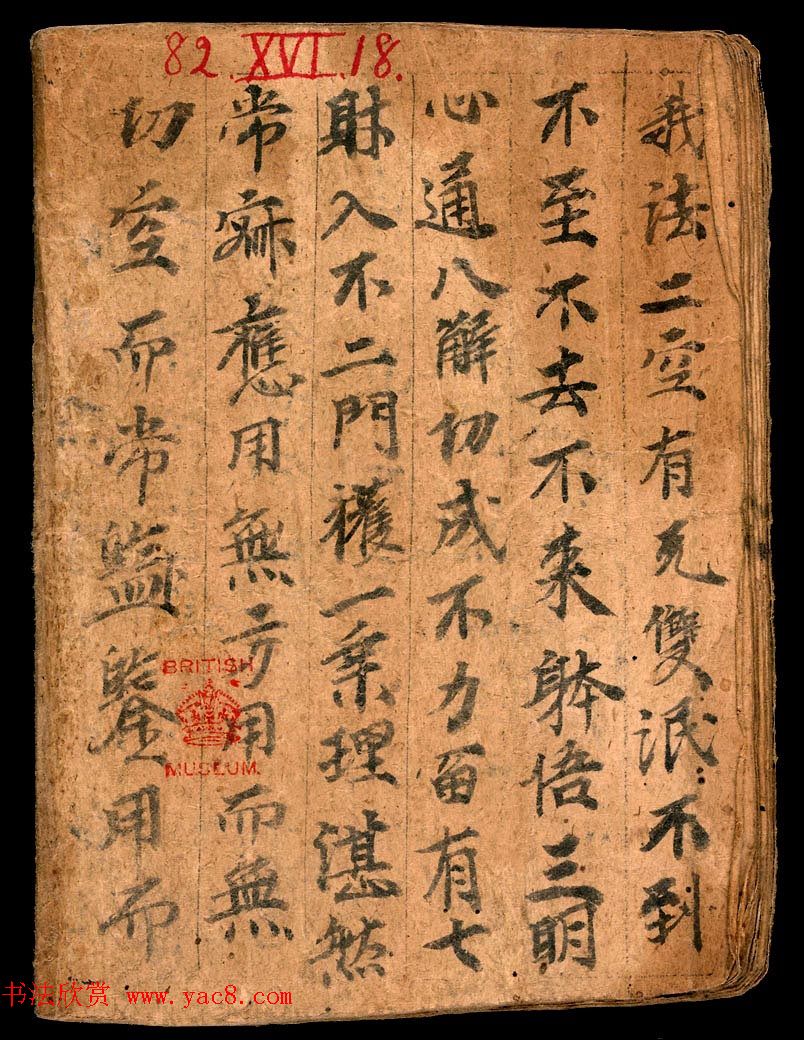 82.XVI.18.
我法二空有无雙泯不到
不至不去不来躰悟三明
心通八解切成不力畄有七
財入不二門獲一乗理湛然
常寂應用無方用而無
切空而常監鍳用而
BRITISH
MUSEUM.
书法欣赏 www.yac8.com